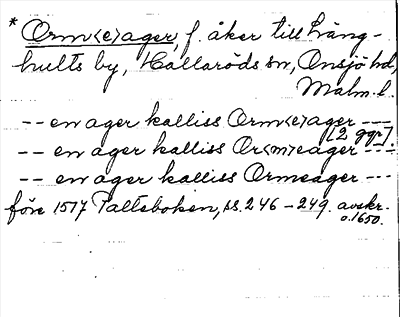 * Orm<e>ager, f. åker till Läng-
hults by, Hallaröds sn, Onsjö hd,
Malm. l.
-- en ager kalliss Orm<e>ager ---
[2 ggr].
-- en ager kalliss Or<m>eager ---
-- en ager kalliss Ormeager ---
före 1517 Palteboken, ss. 246-249. avskr.
o. 1650.